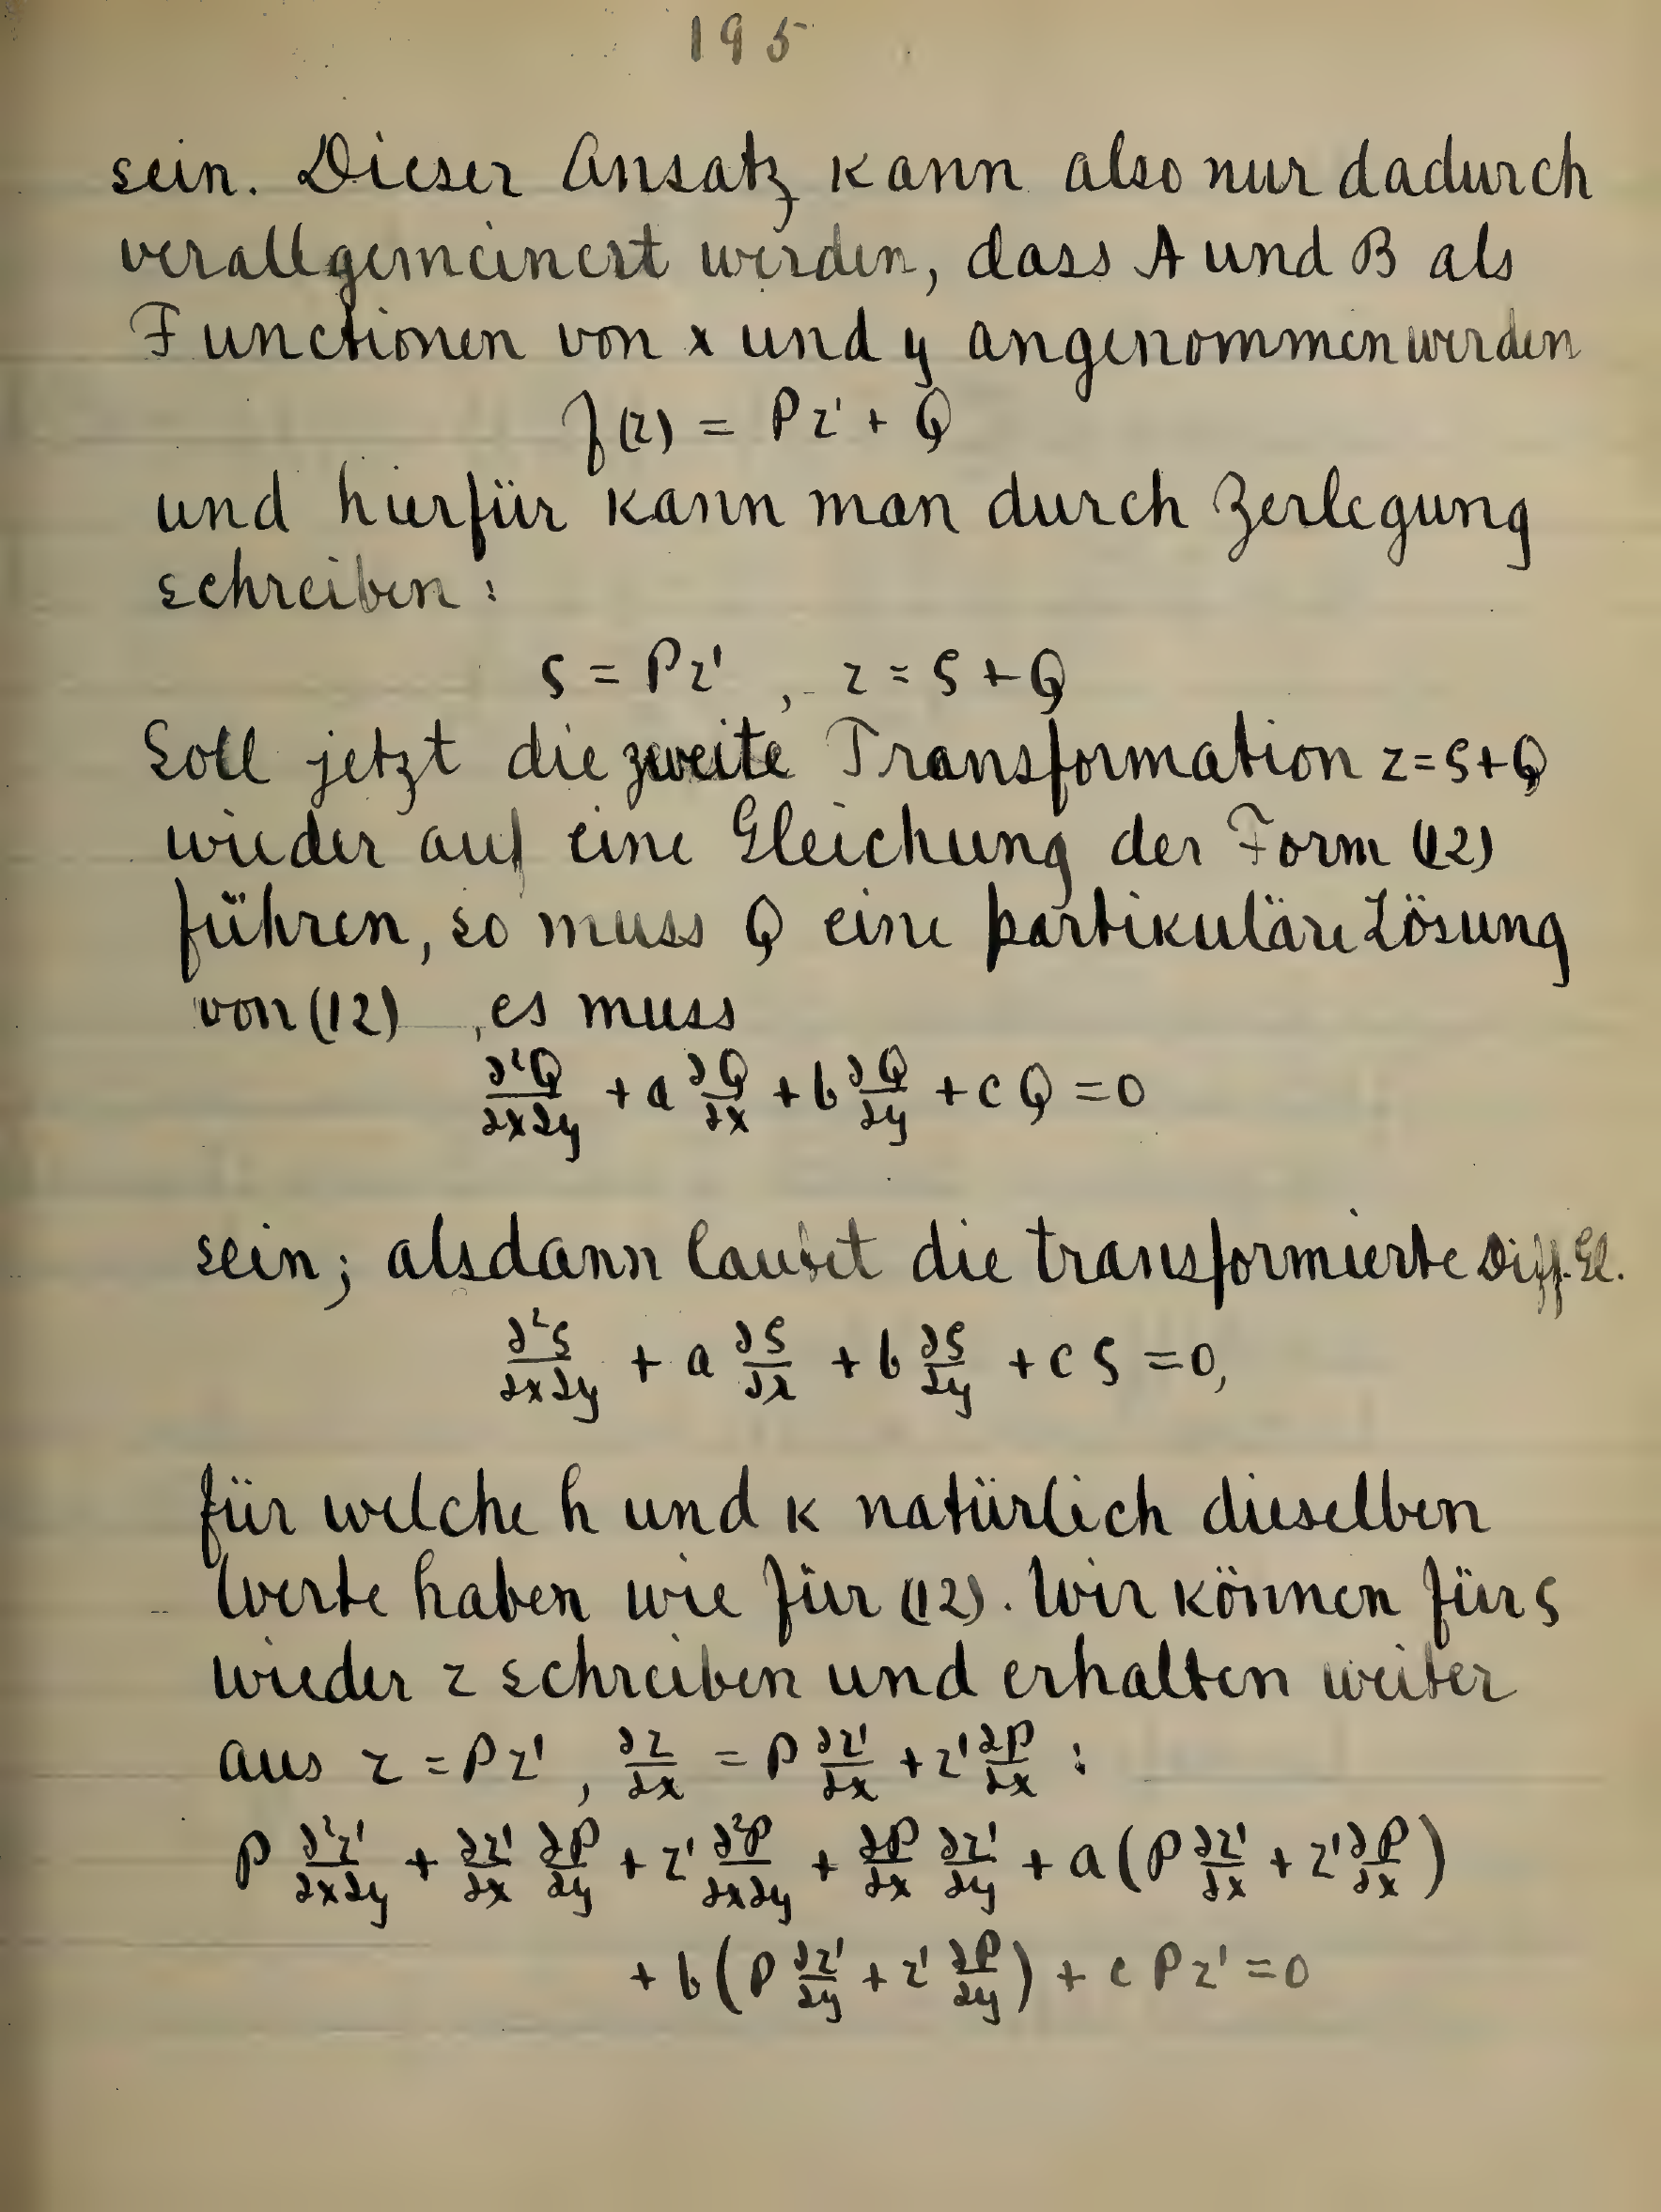 195
sein. Dieser Ansatz kann also nur dadurch
verallgemeinert werden, dass A und B als
Functionen von x und y angenommen werden
f(z) = Pz' + Q
und hierfür kann man durch Zerlegung
schreiben:
ζ = Pz' , z = ζ + Q
Soll jetzt die zweite Transformation z = ζ + Q
wieder auf eine Gleichung der Form (12)
führen, so muss Q eine partikuläre Lösung
von (12) , es muss
∂²Q/∂x∂y + a ∂Q/∂x + b ∂Q/∂y + c Q = 0
sein; alsdann lautet die transformierte Diff. Gl.
∂²ζ/∂x∂y + a ∂ζ/∂x + b ∂ζ/∂y + c ζ = 0,
für welche h und k natürlich dieselben
Werte haben wie für (12). Wir können für ζ
wieder z schreiben und erhalten weiter
aus z = Pz' , ∂z/∂x = P ∂z'/∂x + z' ∂P/∂x :
P ∂²z'/∂x∂y + ∂z'/∂x ∂P/∂y + z' ∂²P/∂x∂y + ∂P/∂x ∂z'/∂y + a (P ∂z'/∂x + z' ∂P/∂x)
+ b (P ∂z'/∂y + z' ∂P/∂y) + c P z' = 0